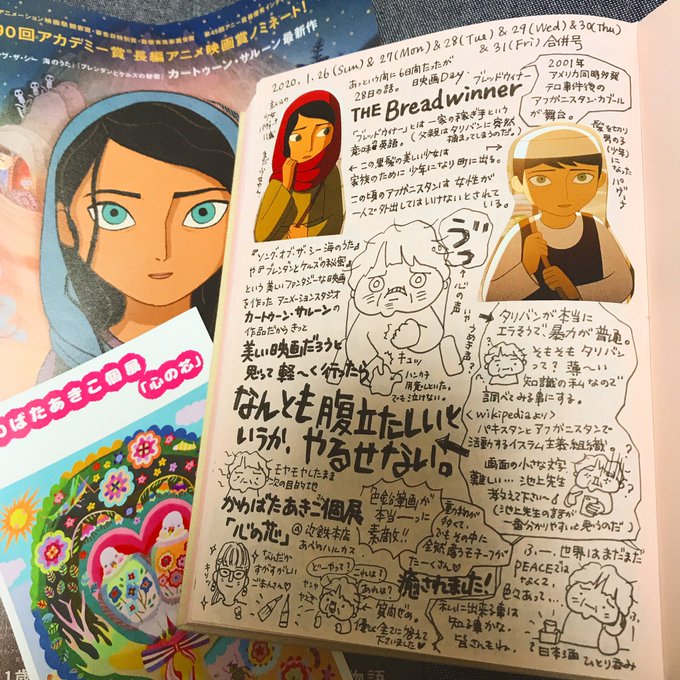 90回アカデミー賞 長編アニメ映画賞ノミネート!
ヴ・ザ・シー 海のうた」「ブレンダンとケルズの秘密」カートゥーン・サルーン最新作
わばたあきこ個展
「心の芯」
2020.1.26(Sun)&27(Mon)&28(Tue)&29(Wed)&30(Thu)
&31(Fri) 合併号
あっという間に6日間たったが
28日の話。 映画Day.
ブレッドウィナー
THE Breadwinner
「ブレッドウィナー」とは一家の稼ぎ手という
意味の英語。(父親はタリバンに突然
捕まってしまうのだ。)
2001年
アメリカ同時多発
テロ事件後の
アフガニスタン・カブール
が舞台。
髪を切り
男の子
(少年)
になった
パヴァーナ
← この黒髪の美しい少女は
家族のために少年になり町に出る。
この頃のアフガニスタンは女性が
一人で外出してはいけないとされて
いる。
『ソング・オブ・ザ・シー 海のうた』
や『ブレンダンとケルズの秘密』
という美しいファンタジーな映画
を作ったアニメーションスタジオ
カートゥーン・サルーンの
作品だからきっと
美しい映画だろうと
思って軽〜く行ったら
なんとも腹立たしいと
いうか、やるせない。
うっ
←心の声
いや、うめき声?
ギュッ
ハンカチ
用意していた。
でも泣けない。
タリバンが本当に
エラそうで、暴力が普通。
そもそもタリバン
って? 薄〜い
知識の私なので
調べてみる事にする。
<wikipediaより>
パキスタンとアフガニスタンで
活動するイスラム主義組織。
画面の小さな文字
難しい…池上先生
教えて下さい〜!
(池上先生の話が
一番分かりやすいと思うのだ)
モヤモヤしたまま
次の目的地
かわばたあきこ個展
「心の芯」
@
あべのハルカス
色鉛筆画が
本当ーっに
素敵!!
動物が
多くて、
でもその中に
全然違うモチーフが
たーくさん
癒されました!
なんだか
すがすがしい
ご本人さん
どーやって?
これは?
あれは?
← 質問ぜめ。
優しく全てに答えて
下さいました
ふー。世界はまだまだ
PEACEでは
なくて、
色々あって…
私に出来る事は
知る事かな。
皆さんもね。
日本酒
ひとり呑み
1歳
物語